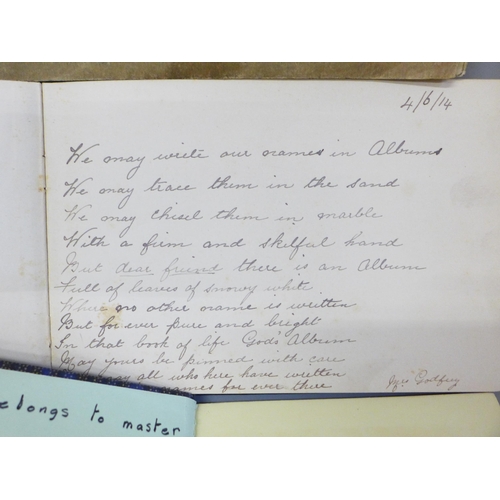 4/6/14
We may write our names in Albums
We may trace them in the sand
We may chisel them in marble
With a firm and skilful hand
But dear friend there is an Album
Full of leaves of snowy white
Where no other name is written
But for ever pure and bright
In that book of life God's Album
May yours be pinned with care
all who here have written
names for ever there
Godfrey
elongs to master